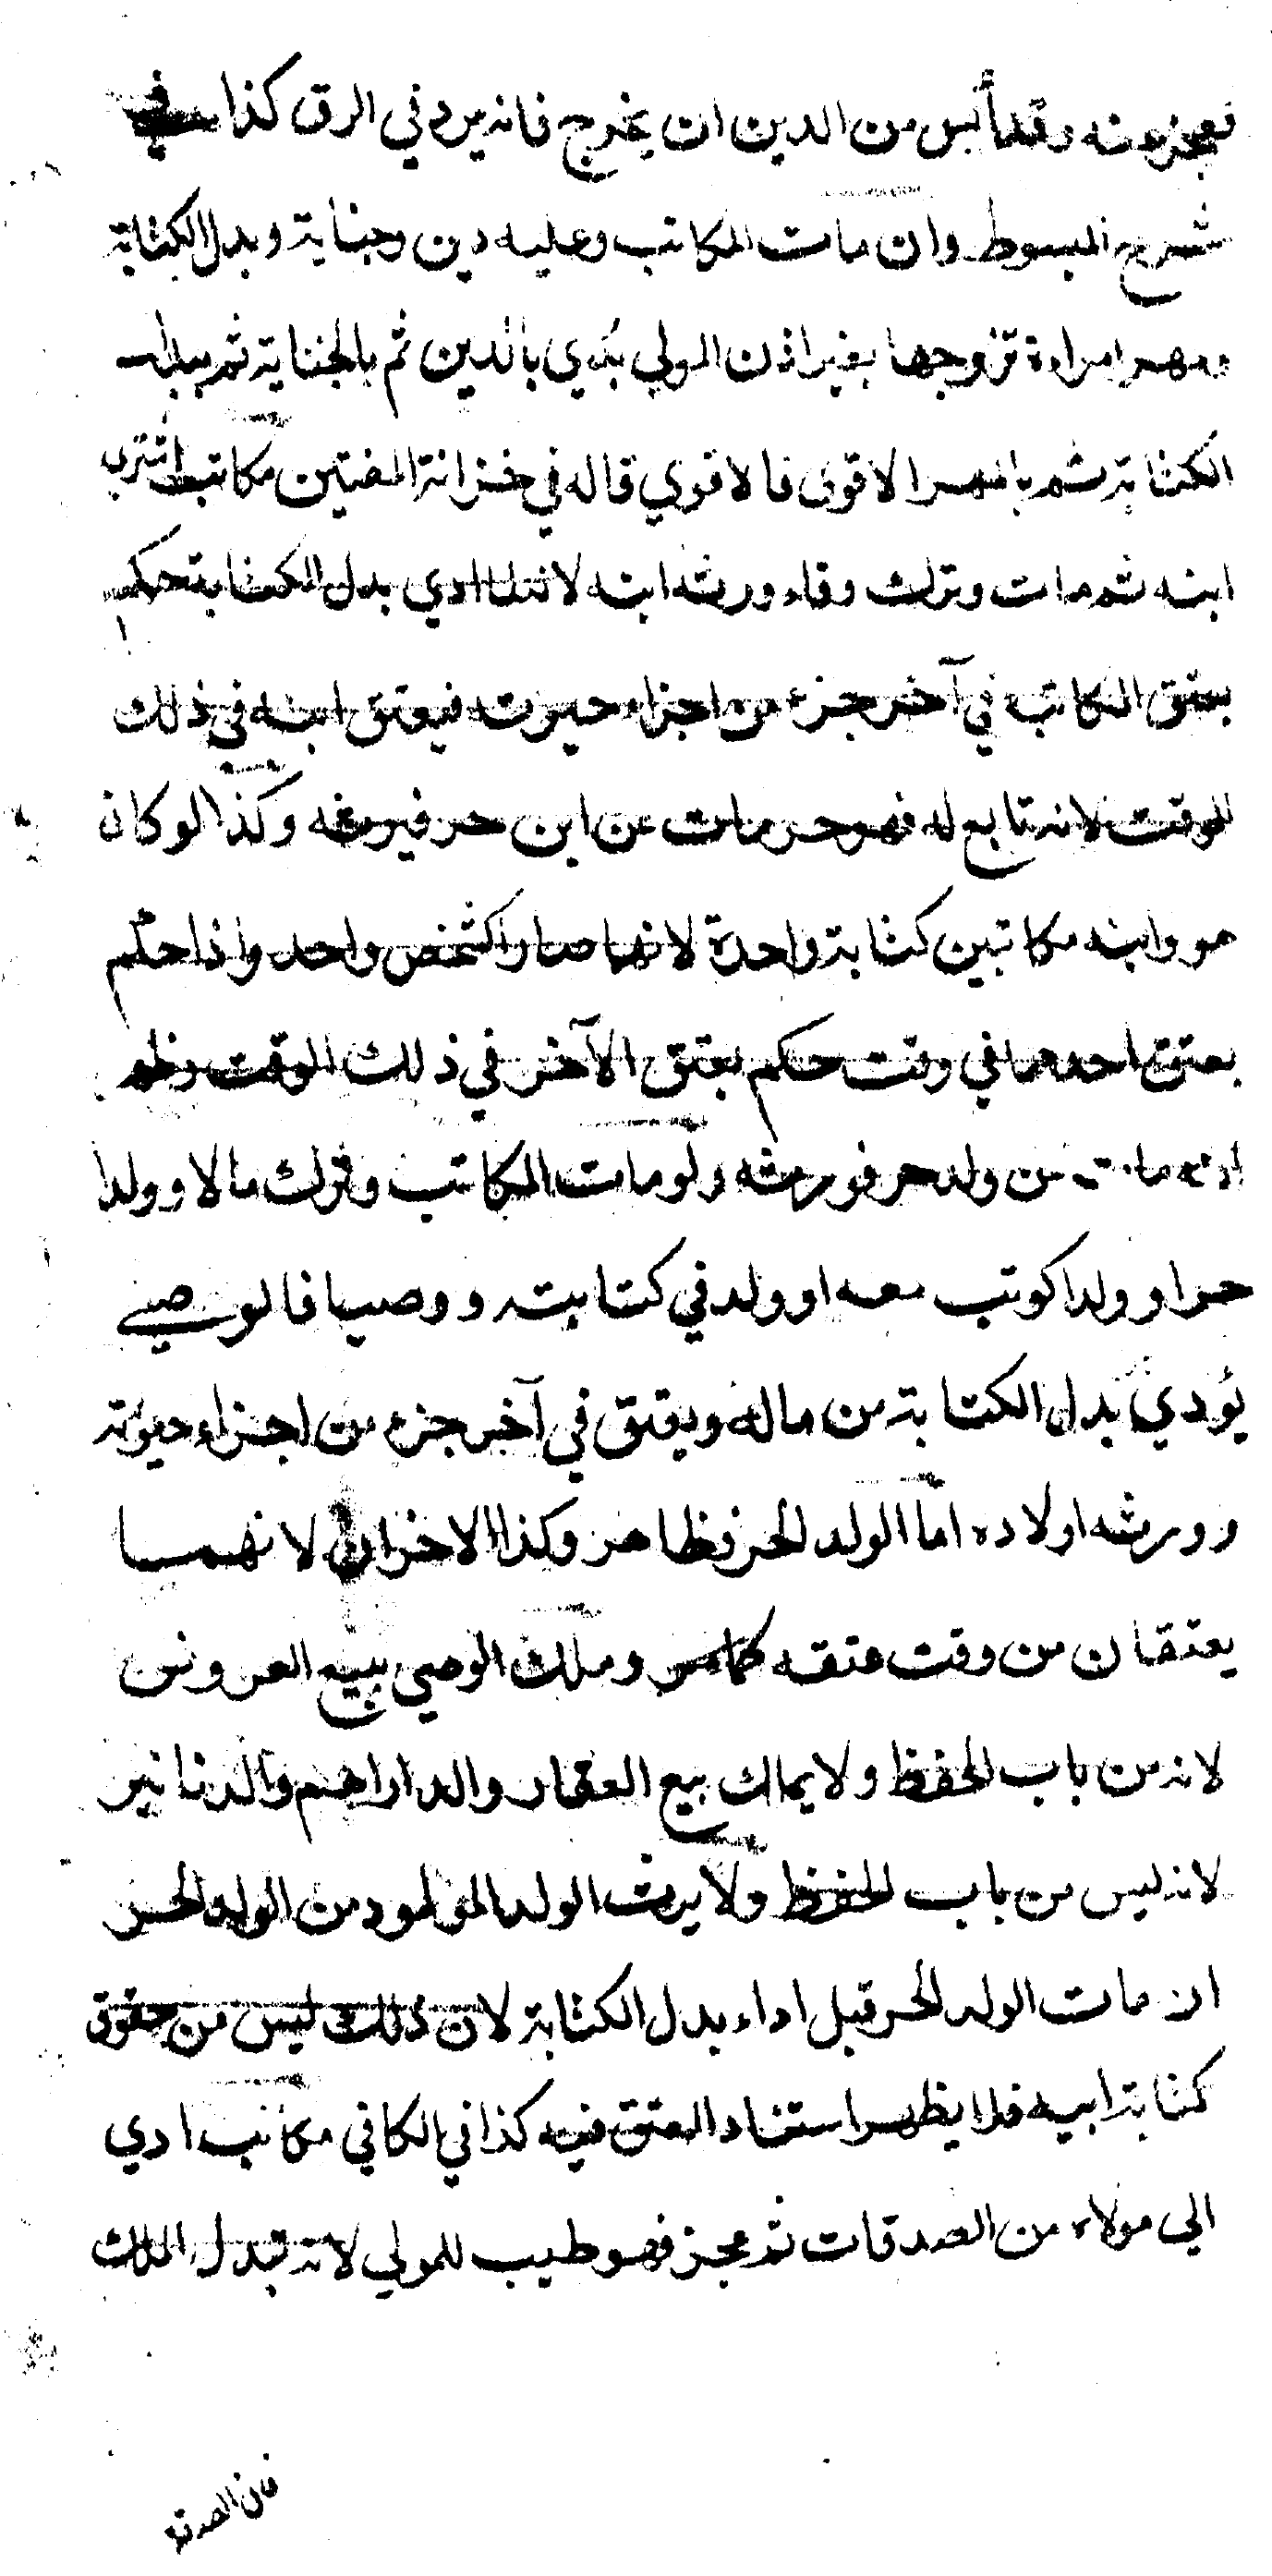 فعجز عنه وقد أيس من الدين ان يخرج فانه يرد في الرق كذا في
شرح المبسوط وان مات المكاتب وعليه دين وجناية وبدل الكتابة
ومهر امراءة تزوجها بغير اذن المولي بدي بالدين ثم بالجناية ثم ببدل
الكتابة ثم بالمهر الاقوى فالاقوي قاله في خزانة المفتين مكاتب اشتري
ابنه ثم مات وترك وفاء ورثه ابنه لانه لما ادي بدل الكتابة حكم
بعتق المكاتب في آخر جزء من اجزاء حيوته فيعتق ابنه في ذلك
الوقت لانه تابع له فهو حر مات عن ابن حر فيرثه وكذا لو كان
هو وابنه مكاتبين كتابة واحدة لانهما صارا كشخص واحد واذا حكم
بعتق احدهما في وقت حكم بعتق الآخر في ذلك الوقت وظهر
انه مات عن ولد حر فورثه ولو مات المكاتب وترك مالا وولدا
حرا وولدا كوتب معه او ولد في كتابته ووصيا فالوصي
يؤدي بدل الكتابة من ماله ويعتق في آخر جزء من اجزاء حيوته
وورثه اولاده اما الولد الحر فظاهر وكذا الاخران لانهما
يعتقان من وقت عتقه كما مر وملك الوصي بيع العروض
لانه من باب الحفظ ولا يملك بيع العقار والداراهم والدنانير
لانه ليس من باب الحفظ ولا يرث الولد المولود من الولد الحر
ان مات الولد الحر قبل اداء بدل الكتابة لان ذلك ليس من حقوق
كتابة ابيه فلا يظهر استناد العتق فيه كذا في الكافي مكاتب ادي
الي مولاه من الصدقات ثم عجز فهو طيب للمولي لانه تبدل الملك
فان الصدقة